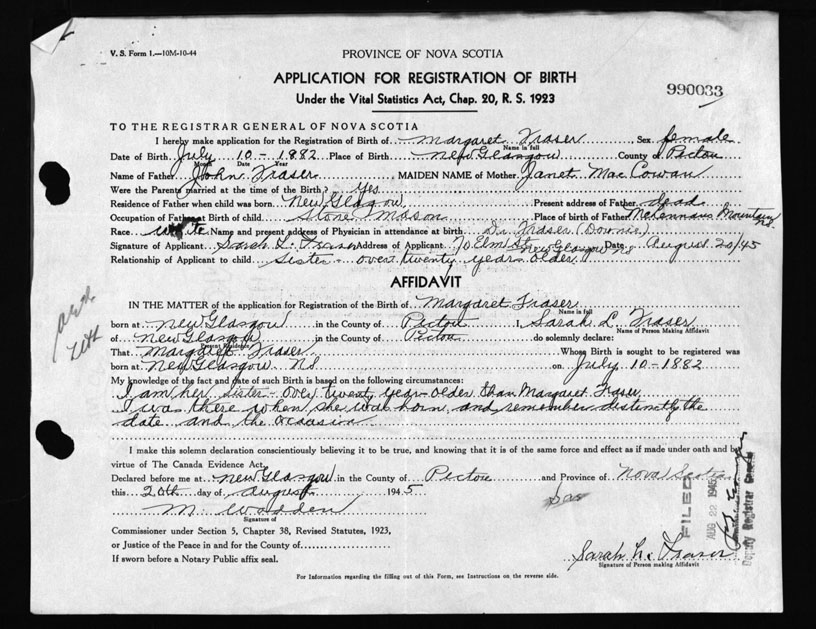 V. S. Form 1.—10M-10-44
PROVINCE OF NOVA SCOTIA
APPLICATION FOR REGISTRATION OF BIRTH
990033
Under the Vital Statistics Act, Chap. 20, R. S. 1923
TO THE REGISTRAR GENERAL OF NOVA SCOTIA
I hereby make application for the Registration of Birth of Margaret Fraser Sex female
Name in full
Date of Birth July 10 - 1882 Place of Birth New Glasgow County of Pictou
Month Date Year
Name of Father John Fraser MAIDEN NAME of Mother Janet MacCowan
Were the Parents married at the time of the Birth? yes
Residence of Father when child was born New Glasgow Present address of Father dead
Occupation of Father at Birth of child Stone Mason Place of birth of Father McLennans Mountain NS
Race white Name and present address of Physician in attendance at birth Dr Fraser (Downie)
Signature of Applicant Sarah L. Fraser Address of Applicant 70 Elm St New Glasgow NS Date August 20/45
Relationship of Applicant to child Sister - over twenty years older
AFFIDAVIT
IN THE MATTER of the application for Registration of the Birth of Margaret Fraser
Name in full
born at New Glasgow in the County of Pictou I, Sarah L. Fraser
Name of Person Making Affidavit
of New Glasgow in the County of Pictou do solemnly declare:
Present Residence
That Margaret Fraser Whose Birth is sought to be registered was
born at New Glasgow NS on July 10 - 1882
My knowledge of the fact and date of such Birth is based on the following circumstances:
I am her sister - over twenty years older than Margaret Fraser
I was there when she was born and remember distinctly the
date and the occasion
I make this solemn declaration conscientiously believing it to be true, and knowing that it is of the same force and effect as if made under oath and by
virtue of The Canada Evidence Act.
Declared before me at New Glasgow in the County of Pictou and Province of Nova Scotia
this 20th day of August 1945
M. Wadden
Signature of
Commissioner under Section 5, Chapter 38, Revised Statutes, 1923,
or Justice of the Peace in and for the County of
If sworn before a Notary Public affix seal.
Sarah L. Fraser
Signature of Person making Affidavit
For Information regarding the filling of this Form, see Instructions on the reverse side.
FILED
AUG 22 1945
Deputy Registrar General